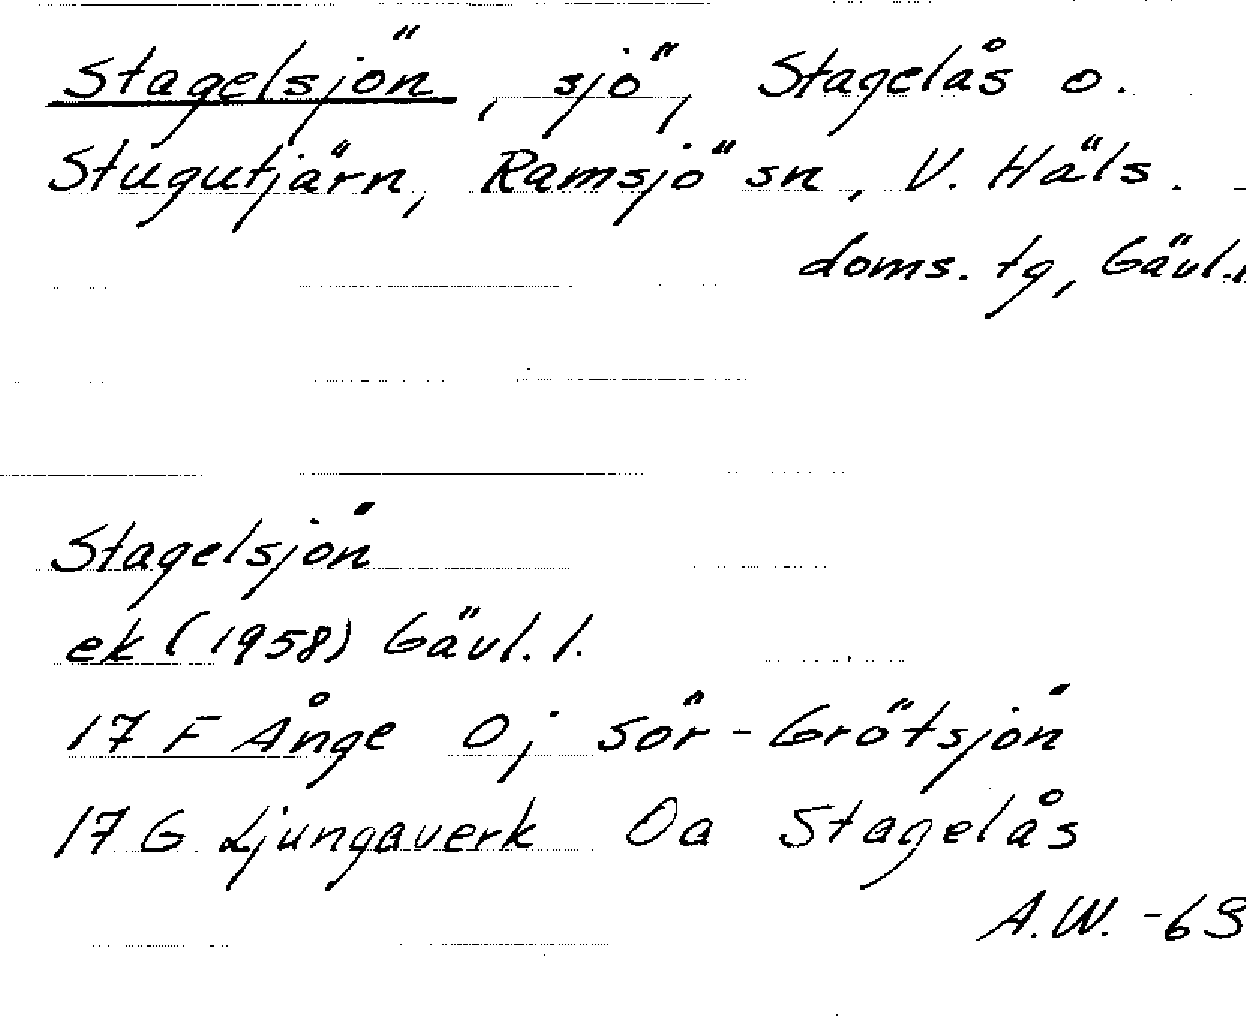 Stagelsjön, sjö, Stagelås o.
Stugutjärn, Ramsjö sn, V. Häls.
doms. tg, Gävl.
Stagelsjön
ek (1958) Gävl. l.
17 F Ånge 0j Sör-Grötsjön
17 G Ljungaverk 0a Stagelås
A.W. -69